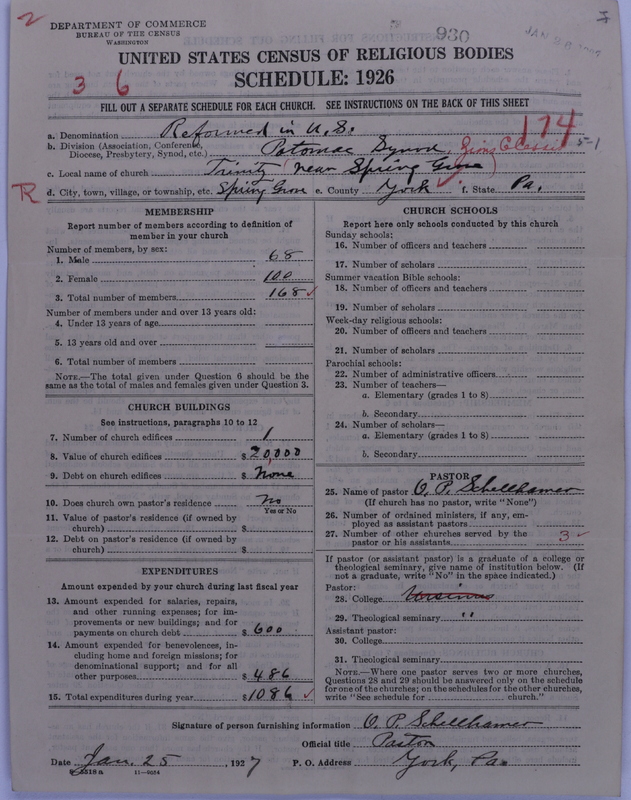 DEPARTMENT OF COMMERCE
BUREAU OF THE CENSUS
WASHINGTON
930
UNITED STATES CENSUS OF RELIGIOUS BODIES
SCHEDULE: 1926
3 6
FILL OUT A SEPARATE SCHEDULE FOR EACH CHURCH. SEE INSTRUCTIONS ON THE BACK OF THIS SHEET
174
a. Denomination Reformed in U.S.
b. Division (Association, Conference, Diocese, Presbytery, Synod, etc.) Potomac Synod, 5-1
c. Local name of church Trinity (near Spring Grove)
R d. City, town, village, or township, etc. Spring Grove e. County York f. State Pa.
MEMBERSHIP
Report number of members according to definition of
member in your church
Number of members, by sex:
1. Male 68
2. Female 100
3. Total number of members 168 ✓
Number of members under and over 13 years old:
4. Under 13 years of age
5. 13 years old and over
6. Total number of members
NOTE.—The total given under Question 6 should be the
same as the total of males and females given under Question 3.
CHURCH BUILDINGS
See instructions, paragraphs 10 to 12
7. Number of church edifices 1
8. Value of church edifices $ 20,000
9. Debt on church edifices $ None
10. Does church own pastor's residence No
Yes or No
11. Value of pastor's residence (if owned by
church) $
12. Debt on pastor's residence (if owned by
church) $
EXPENDITURES
Amount expended by your church during last fiscal year
13. Amount expended for salaries, repairs,
and other running expenses; for im-
provements or new buildings; and for
payments on church debt $ 600
14. Amount expended for benevolences, in-
cluding home and foreign missions; for
denominational support; and for all
other purposes $ 486
15. Total expenditures during year $ 1086 ✓
CHURCH SCHOOLS
Report here only schools conducted by this church
Sunday schools:
16. Number of officers and teachers
17. Number of scholars
Summer vacation Bible schools:
18. Number of officers and teachers
19. Number of scholars
Week-day religious schools:
20. Number of officers and teachers
21. Number of scholars
Parochial schools:
22. Number of administrative officers
23. Number of teachers—
a. Elementary (grades 1 to 8)
b. Secondary
24. Number of scholars—
a. Elementary (grades 1 to 8)
b. Secondary
PASTOR
25. Name of pastor O. P. Schellhamer
(If church has no pastor, write "None")
26. Number of ordained ministers, if any, em-
ployed as assistant pastors
27. Number of other churches served by the
pastor or his assistants 3 ✓
If pastor (or assistant pastor) is a graduate of a college or
theological seminary, give name of institution below. (If
not a graduate, write "No" in the space indicated.)
Pastor:
28. College Ursinus
29. Theological seminary "
Assistant pastor:
30. College
31. Theological seminary
NOTE.—Where one pastor serves two or more churches,
Questions 28 and 29 should be answered only on the schedule
for one of the churches; on the schedules for the other churches,
write "See schedule for church."
Signature of person furnishing information O. P. Schellhamer
Official title Pastor
Date Jan. 25, 1927 P. O. Address York, Pa.
11—9064